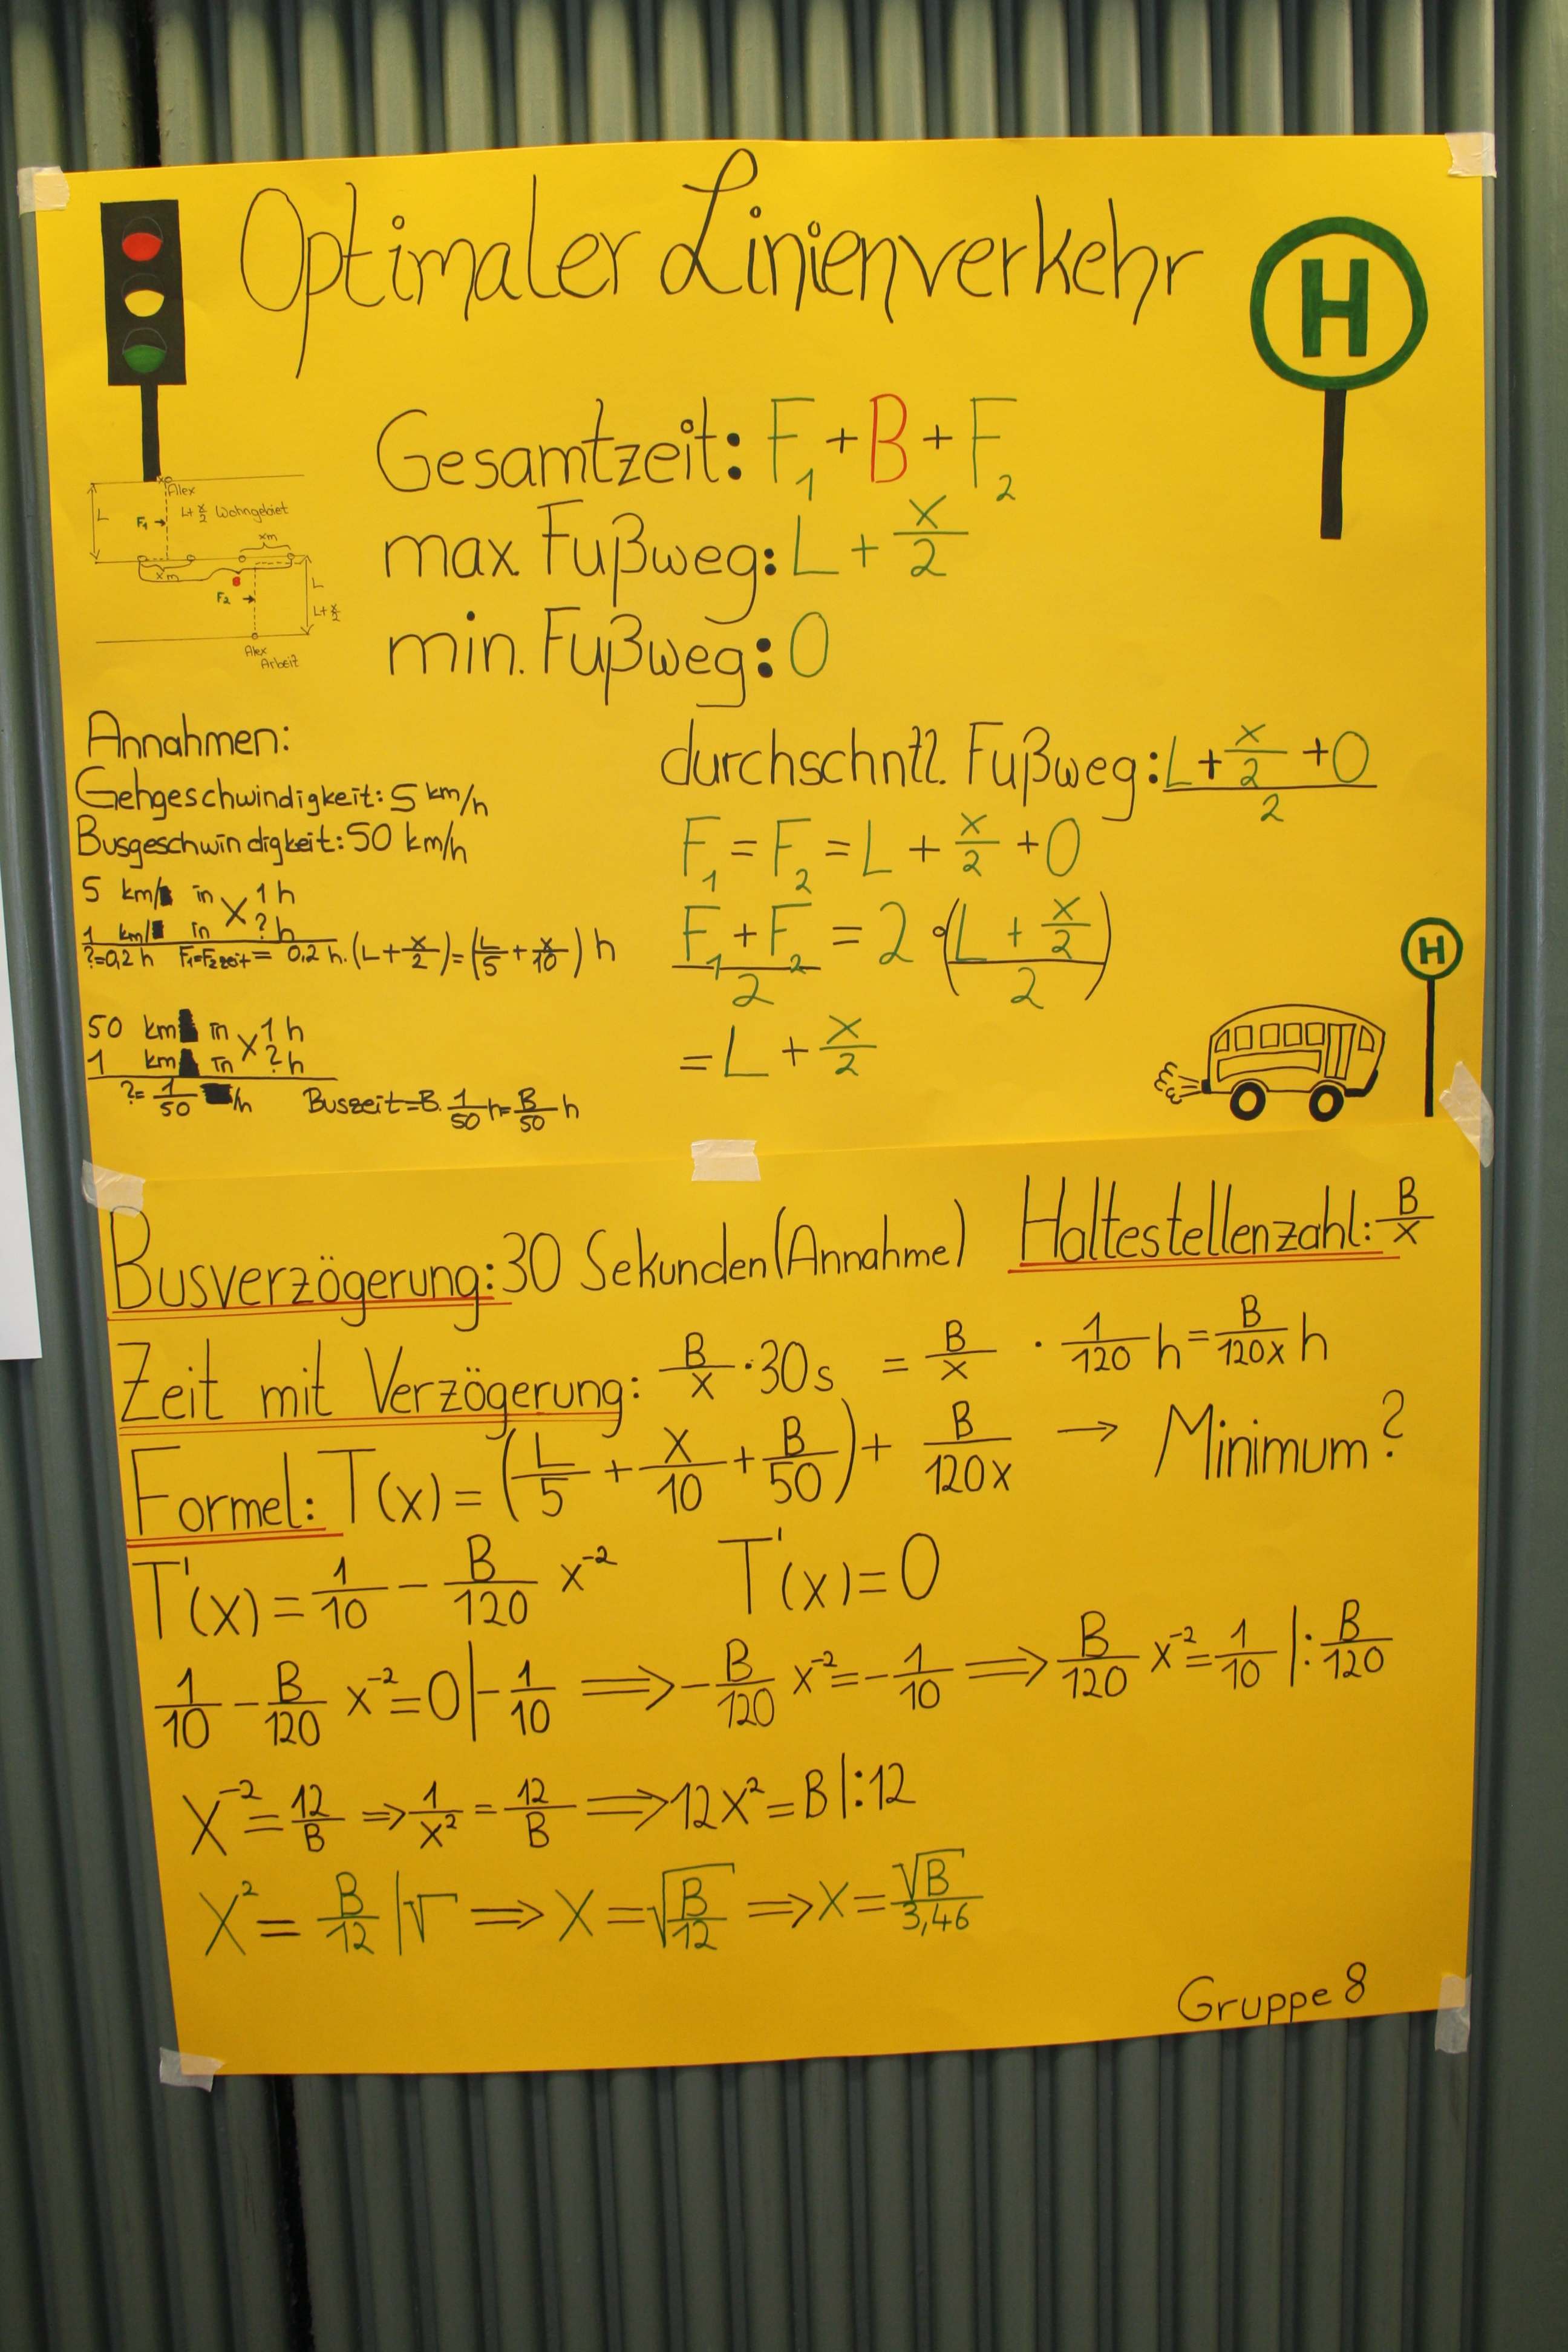 Optimaler Linienverkehr
H
Gesamtzeit: F₁ + B + F₂
max. Fußweg: L + x/2
min. Fußweg: 0
Alex
L
F₁ → L+x/2 Wohngebiet
xm
xm
L
F₂ →
L+x/2
Alex
Arbeit
Annahmen:
Gehgeschwindigkeit: 5 km/h
Busgeschwindigkeit: 50 km/h
5 km in 1 h
X
1 km in ? h
?=0,2 h F₁=F₂zeit = 0,2 h · (L + x/2) = (L/5 + x/10) h
50 km in 1 h
X
1 km in ? h
?= 1/50 /h Buszeit=B · 1/50 h = B/50 h
durchschntl. Fußweg: (L + x/2 + 0)/2
F₁ = F₂ = L + x/2 + 0
(F₁ + F₂)/2 = 2 · ((L + x/2)/2)
= L + x/2
H
Busverzögerung: 30 Sekunden (Annahme) Haltestellenzahl: B/x
Zeit mit Verzögerung: B/x · 30s = B/x · 1/120 h = B/120x h
Formel: T(x) = (L/5 + x/10 + B/50) + B/120x → Minimum?
T'(x) = 1/10 − B/120 x⁻² T'(x) = 0
1/10 − B/120 x⁻² = 0 | − 1/10 ⟹ − B/120 x⁻² = − 1/10 ⟹ B/120 x⁻² = 1/10 | : B/120
x⁻² = 12/B ⟹ 1/x² = 12/B ⟹ 12x² = B | : 12
x² = B/12 | √ ⟹ x = √(B/12) ⟹ x = √B/3,46
Gruppe 8